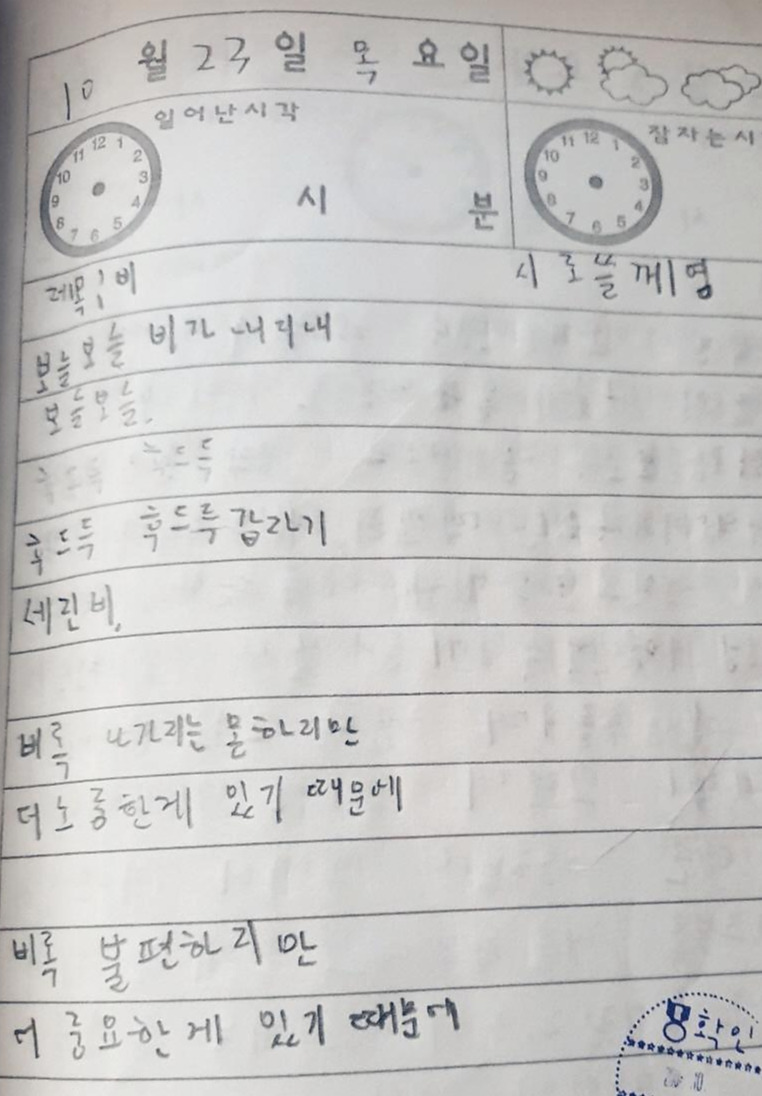 10 월 23 일 목 요 일
일어난시각 12 1 2 3 4 5 6 7 8 9 10 11
시 분
잠자는시 12 1 2 3 4 5 6 7 8 9 10 11
제목: 비 시로쓸께영
보슬보슬 비가 내리내
보슬보슬.
후드득 후드득
후드득 후드득 갑자기
세진비.
비록 나가지는 못하지만
더 소중한게 있기 때문에
비록 불편하지만
더 중요한게 있기 때문에
확인